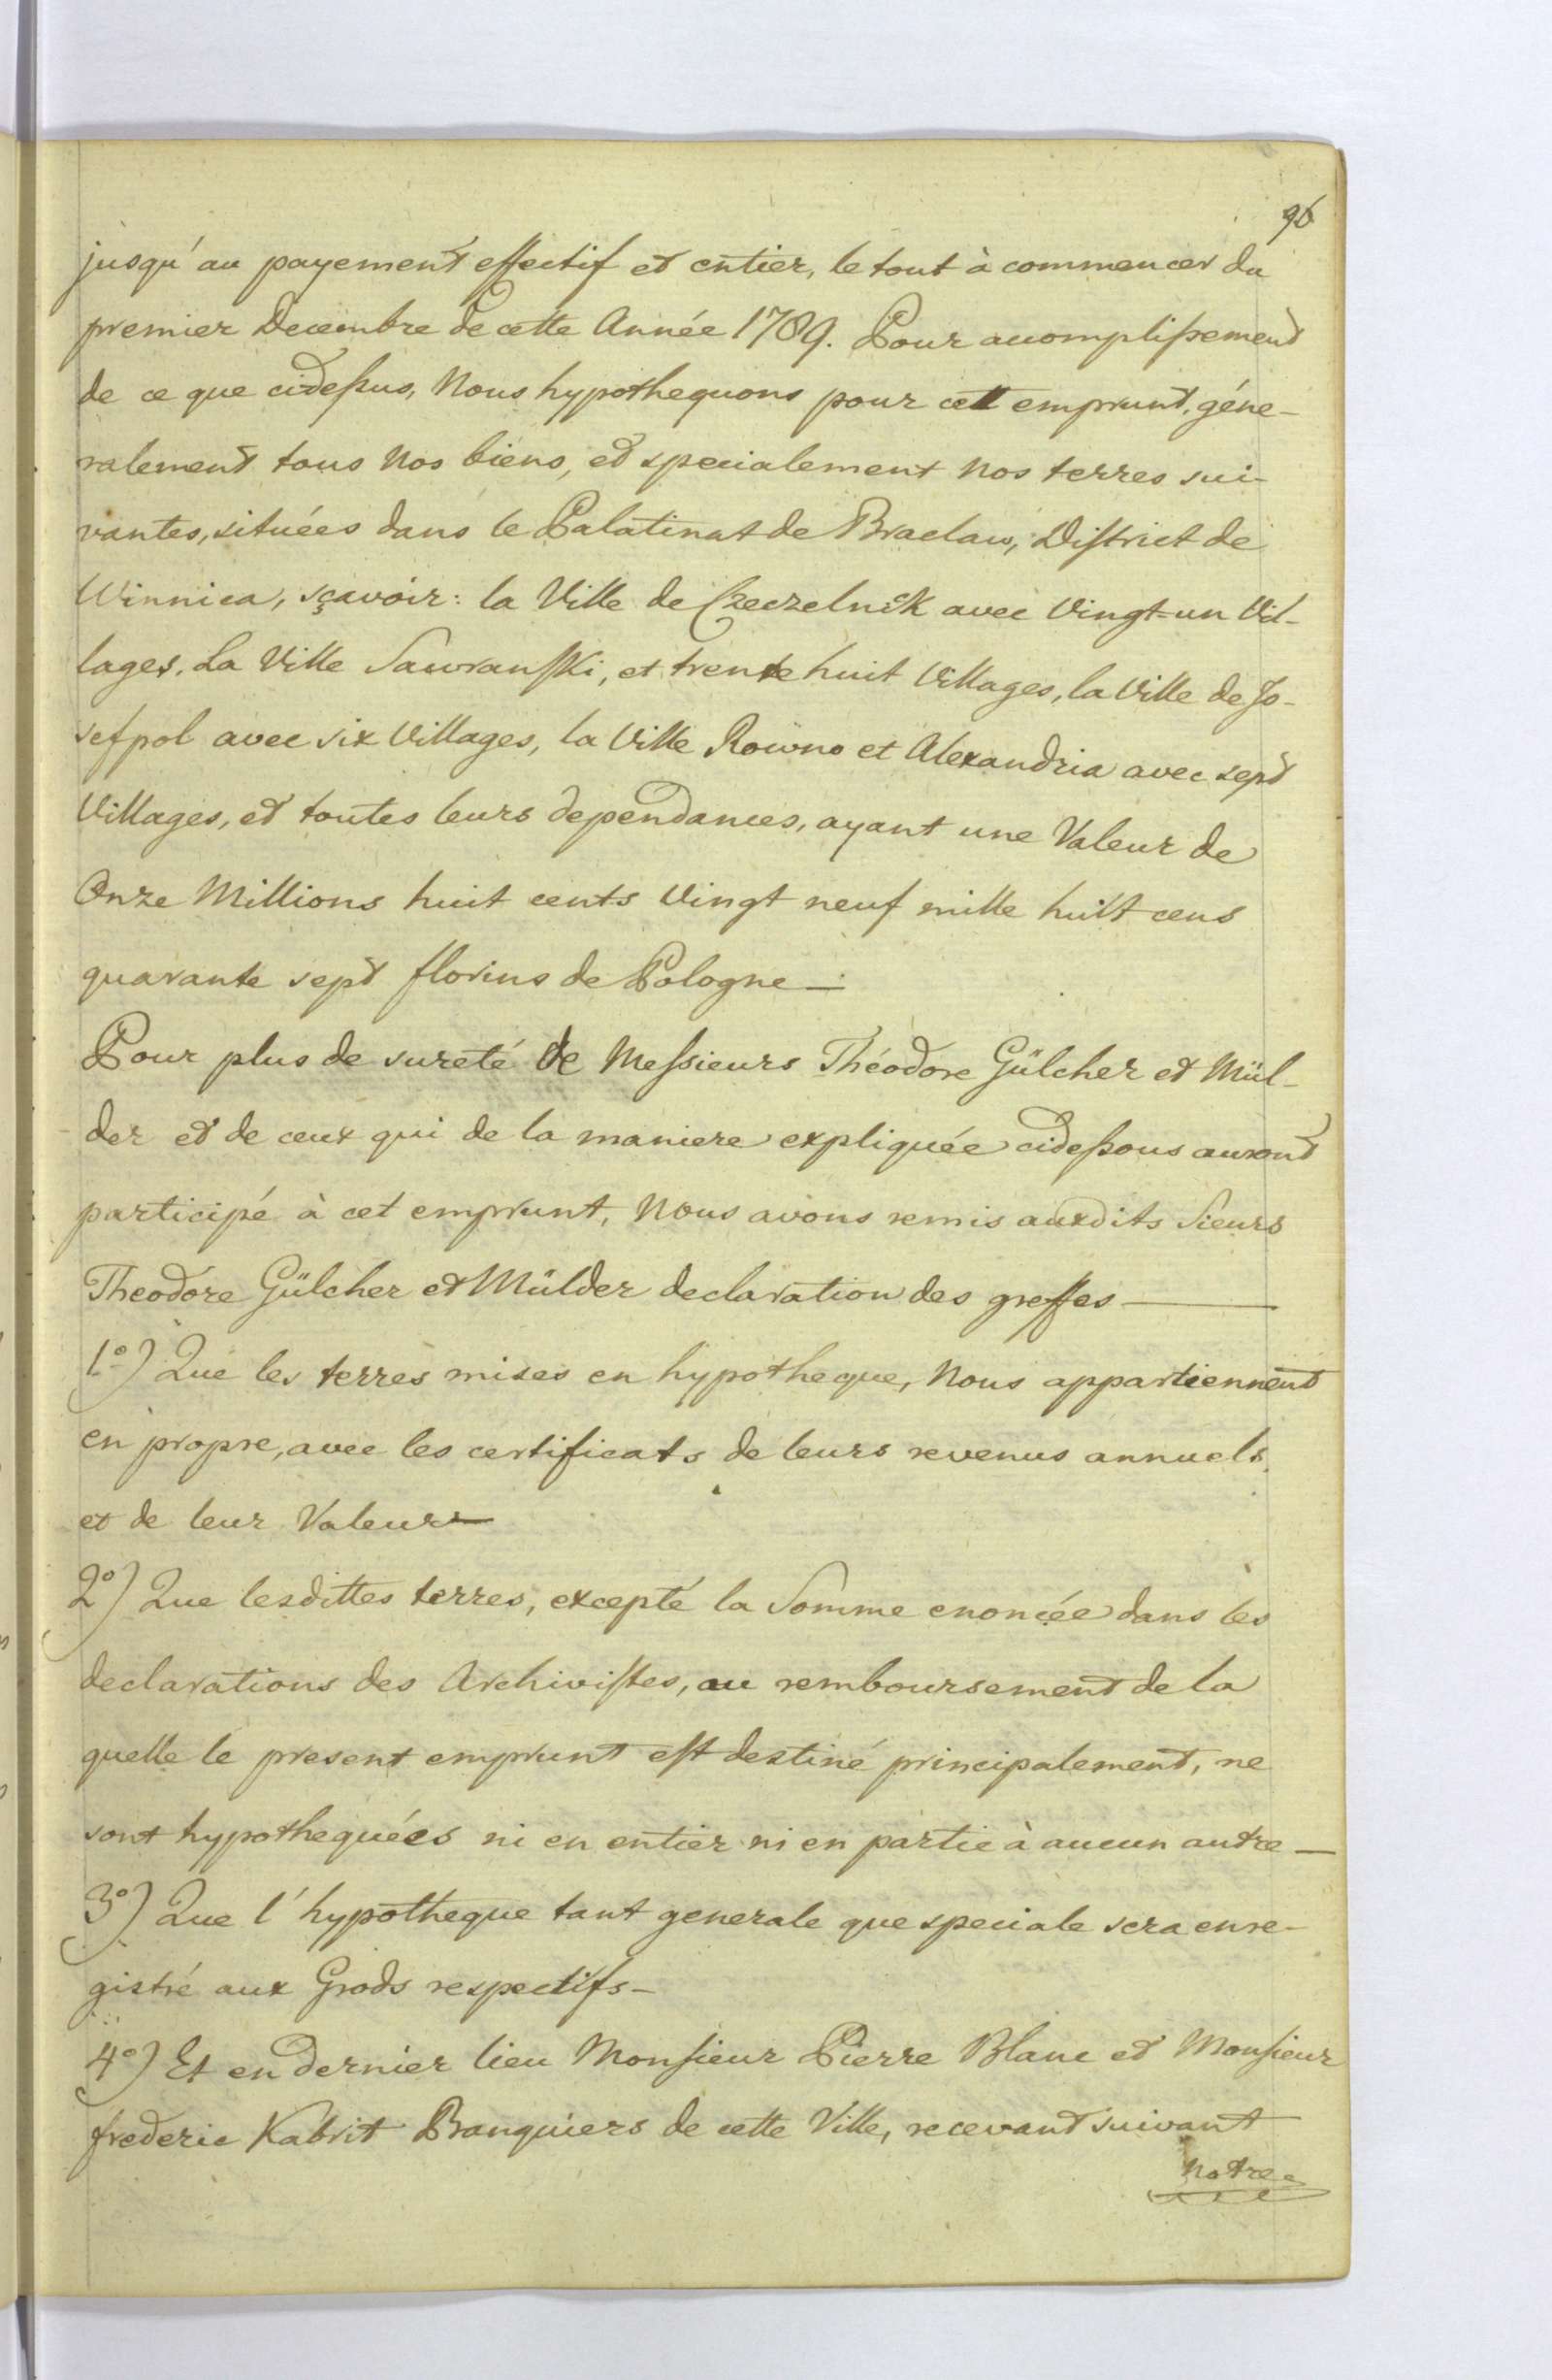 96
jusqu'au payement effectif et entier, le tout à commencer du
premier Decembre de cette Année 1789. Pour accomplissement
de ce que cidessus, Nous hypothequons pour cett emprunt, géne-
ralement tous Nos biens, et specialement Nos terres sui-
vantes, situées dans le Palatinat de Braclaw, District de
Winnica, sçavoir: la Ville de Czeczelnick avec Vingt-un Vil-
lages. La Ville Sawranski, et trente huit Villages, la Ville de Jo-
sefpol avec six Villages, la Ville Rowno et Alexandria avec sept
Villages, et toutes leurs dependances, ayant une Valeur de
Onze Millions huit cents Vingt neuf mille huit cens
quarante sept florins de Pologne —
Pour plus de sureté de Messieurs Théodore Gülcher et Mül-
der et de ceux qui de la maniere expliquée cidessous auront
participé à cet emprunt, Nous avons remis auxdits Sieurs
Theodore Gülcher et Mülder declaration des greffes —
1°) Que les terres mises en hypotheque, Nous appartiennent
en propre, avec les certificats de leurs revenus annuels
et de leur Valeurs —
2°) Que lesdittes terres, excepté la Somme enoncée dans les
declarations des Archivistes, au remboursement de la
quelle le present emprunt est destiné principalement, ne
sont hypothequées ni en entier ni en partie à aucun autre —
3°) Que l'hypotheque tant generale que speciale sera enre-
gistré aux Grods respectifs —
4°) Et en dernier lieu Monsieur Pierre Blanc et Monsieur
frederic Kabrit Banquiers de cette Ville, recevant suivant
Notre